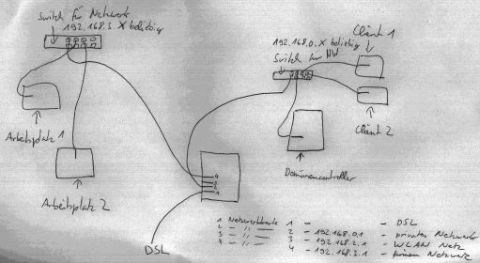 Switch für Netzwerk
192.168.3.X beliebig
Arbeitsplatz 1
Arbeitsplatz 2
192.168.0.X beliebig
Switch für NW
Client 1
Client 2
Domänencontroller
4
3
2
1
DSL
1 Netzwerkkarte 1 - - DSL
2 - // - 2 - 192.168.0.1 - privates Netzwerk
3 - // - 3 - 192.168.2.1 - WLAN Netz
4 - // - 4 - 192.168.3.1 - Netzwerk